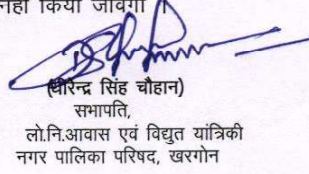 नहीं किया जावेगा ।
(धीरेन्द्र सिंह चौहान)
सभापति,
लो.नि.आवास एवं विद्युत यांत्रिकी
नगर पालिका परिषद, खरगोन